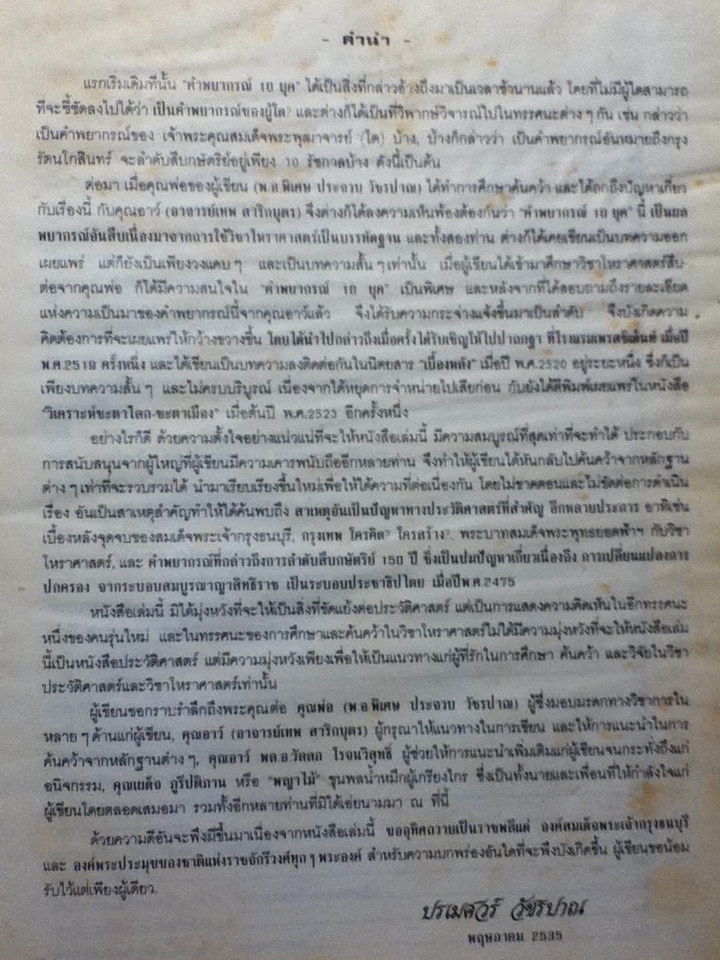 - คำนำ -
แรกเริ่มเดิมทีนั้น "คำพยากรณ์ 10 ยุค" ได้เป็นสิ่งที่กล่าวอ้างถึงมาเป็นเวลาช้านานแล้ว โดยที่ไม่มีผู้ใดสามารถ
ที่จะชี้ชัดลงไปได้ว่า เป็นคำพยากรณ์ของผู้ใด? และต่างก็ได้เป็นที่วิพากษ์วิจารณ์ไปในทรรศนะต่าง ๆ กัน เช่น กล่าวว่า
เป็นคำพยากรณ์ของ เจ้าพระคุณสมเด็จพระพุฒาจารย์ (โต) บ้าง, บ้างก็กล่าวว่า เป็นคำพยากรณ์อันหมายถึงกรุง
รัตนโกสินทร์ จะลำดับสืบกษัตริย์อยู่เพียง 10 รัชกาลบ้าง ดังนี้เป็นต้น
ต่อมา เมื่อคุณพ่อของผู้เขียน (พ.อ.พิเศษ ประจวบ วัชรปาณ) ได้ทำการศึกษาค้นคว้า และได้ถกถึงปัญหาเกี่ยว
กับเรื่องนี้ กับคุณอาว์ (อาจารย์เทพ สาริกบุตร) จึงต่างก็ได้ลงความเห็นพ้องต้องกันว่า "คำพยากรณ์ 10 ยุค" นี้ เป็นผล
พยากรณ์อันสืบเนื่องมาจากการใช้วิชาโหราศาสตร์เป็นบรรทัดฐาน และทั้งสองท่าน ต่างก็ได้เคยเขียนเป็นบทความออก
เผยแพร่ แต่ก็ยังเป็นเพียงวงแคบ ๆ และเป็นบทความสั้น ๆ เท่านั้น เมื่อผู้เขียนได้เข้ามาศึกษาวิชาโหราศาสตร์สืบ
ต่อจากคุณพ่อ ก็ได้มีความสนใจใน "คำพยากรณ์ 10 ยุค" เป็นพิเศษ และหลังจากที่ได้สอบถามถึงรายละเอียด
แห่งความเป็นมาของคำพยากรณ์นี้จากคุณอาว์แล้ว จึงได้รับความกระจ่างแจ้งขึ้นมาเป็นลำดับ จึงบังเกิดความ
คิดต้องการที่จะเผยแพร่ให้กว้างขวางขึ้น โดยได้นำไปกล่าวถึงเมื่อครั้งได้รับเชิญให้ไปปาฐกฐา ที่โรงแรมเพรสซิเด้นท์ เมื่อปี
พ.ศ.2519 ครั้งหนึ่ง และได้เขียนเป็นบทความลงติดต่อกันในนิตยสาร "เบื้องหลัง" เมื่อปี พ.ศ.2520 อยู่ระยะหนึ่ง ซึ่งก็เป็น
เพียงบทความสั้น ๆ และไม่ครบบริบูรณ์ เนื่องจากได้หยุดการจำหน่ายไปเสียก่อน กับยังได้ตีพิมพ์เผยแพร่ในหนังสือ
"วิเคราะห์ชะตาโลก-ชะตาเมือง" เมื่อต้นปี พ.ศ.2523 อีกครั้งหนึ่ง
อย่างไรก็ดี ด้วยความตั้งใจอย่างแน่วแน่ที่จะให้หนังสือเล่มนี้ มีความสมบูรณ์ที่สุดเท่าที่จะทำได้ ประกอบกับ
การสนับสนุนจากผู้ใหญ่ที่ผู้เขียนมีความเคารพนับถืออีกหลายท่าน จึงทำให้ผู้เขียนได้หันกลับไปค้นคว้าจากหลักฐาน
ต่าง ๆ เท่าที่จะรวบรวมได้ นำมาเรียบเรียงขึ้นใหม่เพื่อให้ได้ความที่ต่อเนื่องกัน โดยไม่ขาดตอนและไม่ขัดต่อการดำเนิน
เรื่อง อันเป็นสาเหตุสำคัญทำให้ได้ค้นพบถึง สาเหตุอันเป็นปัญหาทางประวัติศาสตร์ที่สำคัญ อีกหลายประการ อาทิเช่น
เบื้องหลังจุดจบของสมเด็จพระเจ้ากรุงธนบุรี, กรุงเทพ ใครคิด? ใครสร้าง?, พระบาทสมเด็จพระพุทธยอดฟ้าฯ กับวิชา
โหราศาสตร์, และ คำพยากรณ์ที่กล่าวถึงการลำดับสืบกษัตริย์ 150 ปี ซึ่งเป็นปมปัญหาเกี่ยวเนื่องถึง การเปลี่ยนแปลงการ
ปกครอง จากระบอบสมบูรณาญาสิทธิราช เป็นระบอบประชาธิปไตย เมื่อปีพ.ศ.2475
หนังสือเล่มนี้ มิได้มุ่งหวังที่จะให้เป็นสิ่งที่ขัดแย้งต่อประวัติศาสตร์ แต่เป็นการแสดงความคิดเห็นในอีกทรรศนะ
หนึ่งของคนรุ่นใหม่ และในทรรศนะของการศึกษาและค้นคว้าในวิชาโหราศาสตร์ไม่ได้มีความมุ่งหวังที่จะให้หนังสือเล่ม
นี้เป็นหนังสือประวัติศาสตร์ แต่มีความมุ่งหวังเพียงเพื่อให้เป็นแนวทางแก่ผู้ที่รักในการศึกษา ค้นคว้า และวิจัยในวิชา
ประวัติศาสตร์และวิชาโหราศาสตร์เท่านั้น
ผู้เขียนขอกราบรำลึกถึงพระคุณต่อ คุณพ่อ (พ.อ.พิเศษ ประจวบ วัชรปาณ) ผู้ซึ่งมอบมรดกทางวิชาการใน
หลาย ๆ ด้านแก่ผู้เขียน, คุณอาว์ (อาจารย์เทพ สาริกบุตร) ผู้กรุณาให้แนวทางในการเขียน และให้การแนะนำในการ
ค้นคว้าจากหลักฐานต่าง ๆ, คุณอาว์ พล.อ.วัลลภ โรจนวิสุทธิ์ ผู้ช่วยให้การแนะนำเพิ่มเติมแก่ผู้เขียนจนกระทั่งถึงแก่
อนิจกรรม, คุณเผด็จ ภูรีปติภาน หรือ "พญาไม้" ขุนพลน้ำหมึกผู้เกรียงไกร ซึ่งเป็นทั้งนายและเพื่อนที่ให้กำลังใจแก่
ผู้เขียนโดยตลอดเสมอมา รวมทั้งอีกหลายท่านที่มิได้เอ่ยนามมา ณ ที่นี้
ด้วยความดีอันจะพึงมีขึ้นมาเนื่องจากหนังสือเล่มนี้ ขออุทิศถวายเป็นราชพลีแด่ องค์สมเด็จพระเจ้ากรุงธนบุรี
และ องค์พระประมุขของชาติแห่งราชจักรีวงศ์ทุก ๆ พระองค์ สำหรับความบกพร่องอันใดที่จะพึงบังเกิดขึ้น ผู้เขียนขอน้อม
รับไว้แต่เพียงผู้เดียว.
ปรเมศวร์ วัชรปาณ
พฤษภาคม 2535